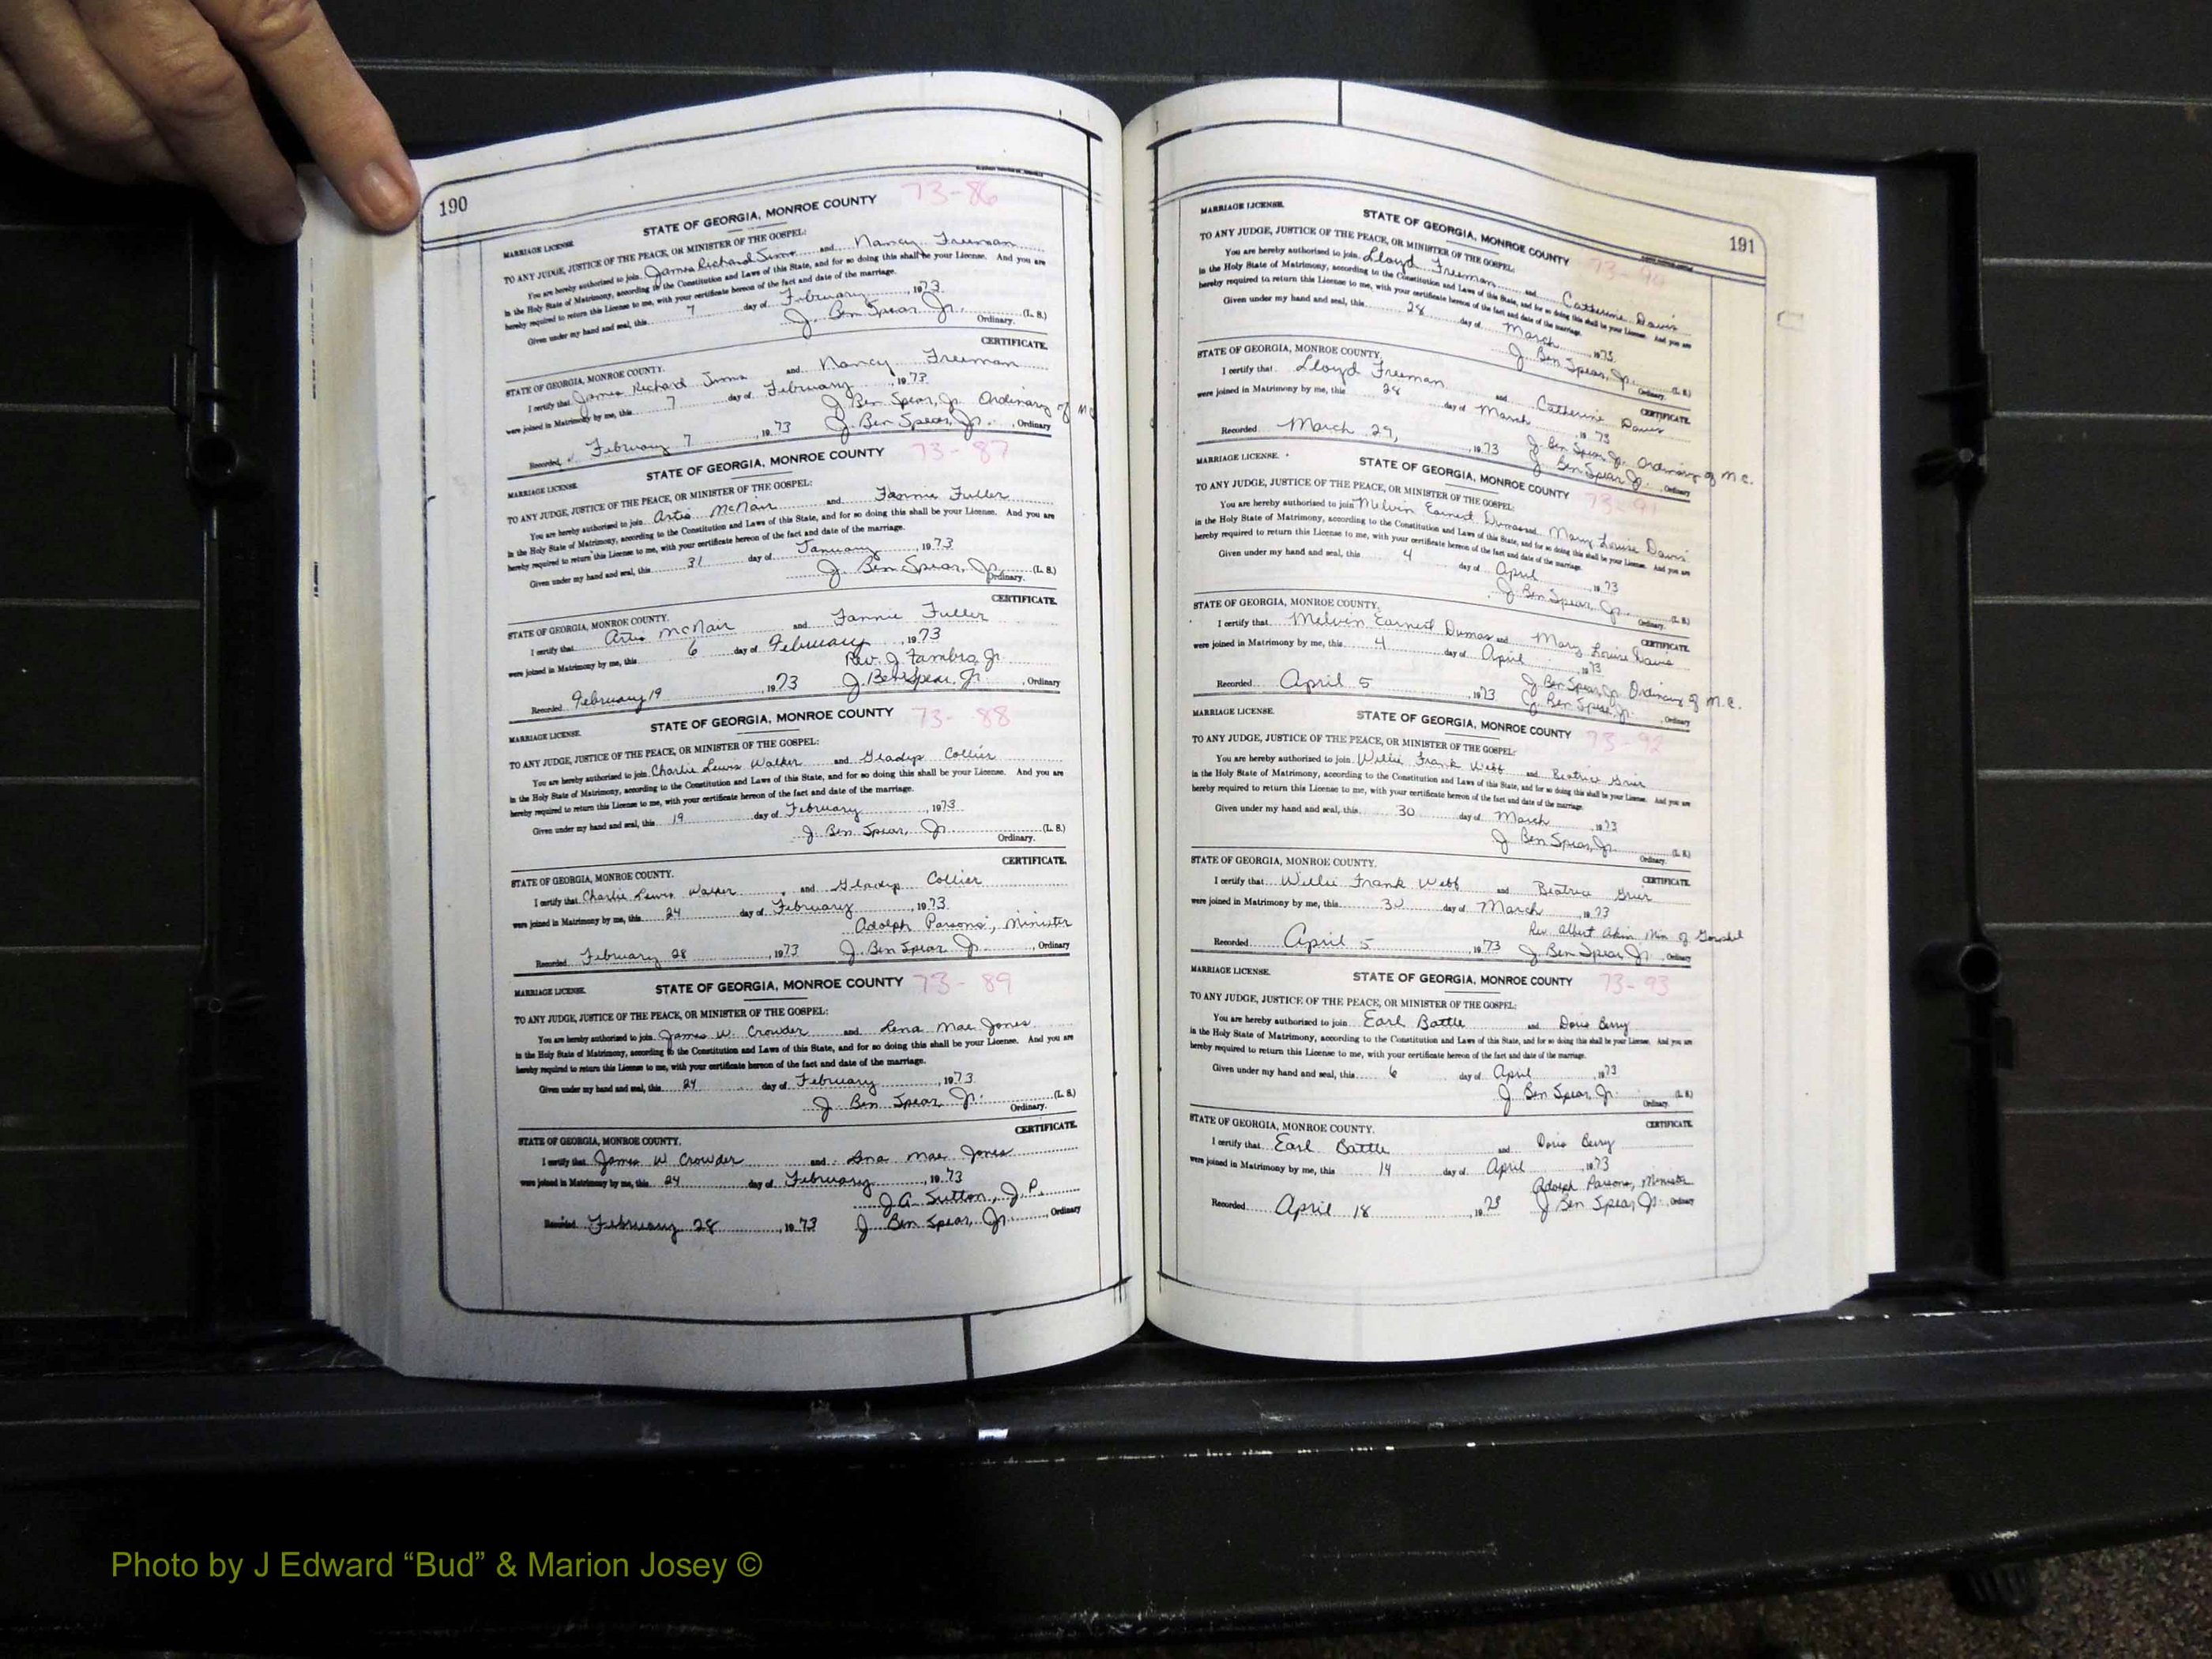 190
73-86
STATE OF GEORGIA, MONROE COUNTY
MARRIAGE LICENSE
TO ANY JUDGE, JUSTICE OF THE PEACE, OR MINISTER OF THE GOSPEL:
You are hereby authorized to join James Richard Sims and Nancy Freeman
in the Holy State of Matrimony, according to the Constitution and Laws of this State, and for so doing this shall be your License. And you are
hereby required to return this License to me, with your certificate hereon of the fact and date of the marriage.
Given under my hand and seal, this 7 day of February, 1973
J. Ben Spear Jr. (L. S.)
Ordinary.
CERTIFICATE.
STATE OF GEORGIA, MONROE COUNTY.
I certify that James Richard Sims and Nancy Freeman
were joined in Matrimony by me, this 7 day of February, 1973
J. Ben Spear, Jr. Ordinary of MC
Recorded February 7, 1973 J. Ben Spear, Jr., Ordinary
STATE OF GEORGIA, MONROE COUNTY 73-87
MARRIAGE LICENSE
TO ANY JUDGE, JUSTICE OF THE PEACE, OR MINISTER OF THE GOSPEL:
You are hereby authorized to join Artis McNair and Fannie Fuller
in the Holy State of Matrimony, according to the Constitution and Laws of this State, and for so doing this shall be your License. And you are
hereby required to return this License to me, with your certificate hereon of the fact and date of the marriage.
Given under my hand and seal, this 31 day of January, 1973
J. Ben Spear, Jr. (L. S.)
Ordinary.
CERTIFICATE.
STATE OF GEORGIA, MONROE COUNTY.
I certify that Artis McNair and Fannie Fuller
were joined in Matrimony by me, this 6 day of February, 1973
Rev. J. Fambro, Jr.
Recorded February 19, 1973 J. Ben Spear, Jr., Ordinary
STATE OF GEORGIA, MONROE COUNTY 73-88
MARRIAGE LICENSE.
TO ANY JUDGE, JUSTICE OF THE PEACE, OR MINISTER OF THE GOSPEL:
You are hereby authorized to join Charlie Lewis Walker and Gladys Collier
in the Holy State of Matrimony, according to the Constitution and Laws of this State, and for so doing this shall be your License. And you are
hereby required to return this License to me, with your certificate hereon of the fact and date of the marriage.
Given under my hand and seal, this 19 day of February, 1973
J. Ben Spear, Jr. (L. S.)
Ordinary.
CERTIFICATE.
STATE OF GEORGIA, MONROE COUNTY.
I certify that Charlie Lewis Walker, and Gladys Collier
were joined in Matrimony by me, this 24 day of February, 1973
Adolph Parsons, Minister
Recorded February 28, 1973 J. Ben Spear Jr., Ordinary
MARRIAGE LICENSE. STATE OF GEORGIA, MONROE COUNTY 73-89
TO ANY JUDGE, JUSTICE OF THE PEACE, OR MINISTER OF THE GOSPEL:
You are hereby authorized to join James W. Crowder and Lena Mae Jones
in the Holy State of Matrimony, according to the Constitution and Laws of this State, and for so doing this shall be your License. And you are
hereby required to return this License to me, with your certificate hereon of the fact and date of the marriage.
Given under my hand and seal, this 24 day of February, 1973
J. Ben Spear, Jr. (L. S.)
Ordinary.
CERTIFICATE.
STATE OF GEORGIA, MONROE COUNTY.
I certify that James W Crowder and Lena Mae Jones
were joined in Matrimony by me, this 24 day of February, 1973
J A Sutton, J.P.
Recorded February 28, 1973 J. Ben Spear, Jr., Ordinary
191
MARRIAGE LICENSE. STATE OF GEORGIA, MONROE COUNTY 73-90
TO ANY JUDGE, JUSTICE OF THE PEACE, OR MINISTER OF THE GOSPEL:
You are hereby authorized to join Lloyd Freeman and Catherine Davis
in the Holy State of Matrimony, according to the Constitution and Laws of this State, and for so doing this shall be your License. And you are
hereby required to return this License to me, with your certificate hereon of the fact and date of the marriage.
Given under my hand and seal, this 28 day of March, 1973
J. Ben Spear, Jr. (L. S.)
Ordinary.
STATE OF GEORGIA, MONROE COUNTY. CERTIFICATE
I certify that Lloyd Freeman and Catherine Davis
were joined in Matrimony by me, this 28 day of March, 1973
J. Ben Spear, Jr. Ordinary of M.C.
Recorded March 29, 1973 J. Ben Spear Jr., Ordinary
MARRIAGE LICENSE. STATE OF GEORGIA, MONROE COUNTY 73-91
TO ANY JUDGE, JUSTICE OF THE PEACE, OR MINISTER OF THE GOSPEL:
You are hereby authorized to join Melvin Earnest Dumas and Mary Louise Davis
in the Holy State of Matrimony, according to the Constitution and Laws of this State, and for so doing this shall be your License. And you are
hereby required to return this License to me, with your certificate hereon of the fact and date of the marriage.
Given under my hand and seal, this 4 day of April, 1973
J. Ben Spear, Jr. (L. S.)
Ordinary.
STATE OF GEORGIA, MONROE COUNTY. CERTIFICATE
I certify that Melvin Earnest Dumas and Mary Louise Davis
were joined in Matrimony by me, this 4 day of April, 1973
J. Ben Spear, Jr. Ordinary of M.C.
Recorded April 5, 1973 J. Ben Spear, Jr., Ordinary
MARRIAGE LICENSE. STATE OF GEORGIA, MONROE COUNTY 73-92
TO ANY JUDGE, JUSTICE OF THE PEACE, OR MINISTER OF THE GOSPEL:
You are hereby authorized to join Willie Frank Webb and Beatrice Grier
in the Holy State of Matrimony, according to the Constitution and Laws of this State, and for so doing this shall be your License. And you are
hereby required to return this License to me, with your certificate hereon of the fact and date of the marriage.
Given under my hand and seal, this 30 day of March, 1973
J. Ben Spear, Jr. (L. S.)
Ordinary.
STATE OF GEORGIA, MONROE COUNTY. CERTIFICATE
I certify that Willie Frank Webb and Beatrice Grier
were joined in Matrimony by me, this 30 day of March, 1973
Rev. Albert Akin Min of Gospel
Recorded April 5, 1973 J. Ben Spear Jr., Ordinary
MARRIAGE LICENSE. STATE OF GEORGIA, MONROE COUNTY 73-93
TO ANY JUDGE, JUSTICE OF THE PEACE, OR MINISTER OF THE GOSPEL:
You are hereby authorized to join Earl Battle and Doris Berry
in the Holy State of Matrimony, according to the Constitution and Laws of this State, and for so doing this shall be your License. And you are
hereby required to return this License to me, with your certificate hereon of the fact and date of the marriage.
Given under my hand and seal, this 6 day of April, 1973
J. Ben Spear, Jr. (L. S.)
Ordinary.
STATE OF GEORGIA, MONROE COUNTY. CERTIFICATE
I certify that Earl Battle and Doris Berry
were joined in Matrimony by me, this 14 day of April, 1973
Adolph Parsons, Minister
Recorded April 18, 1973 J Ben Spear, Jr., Ordinary
Photo by J Edward “Bud” & Marion Josey ©